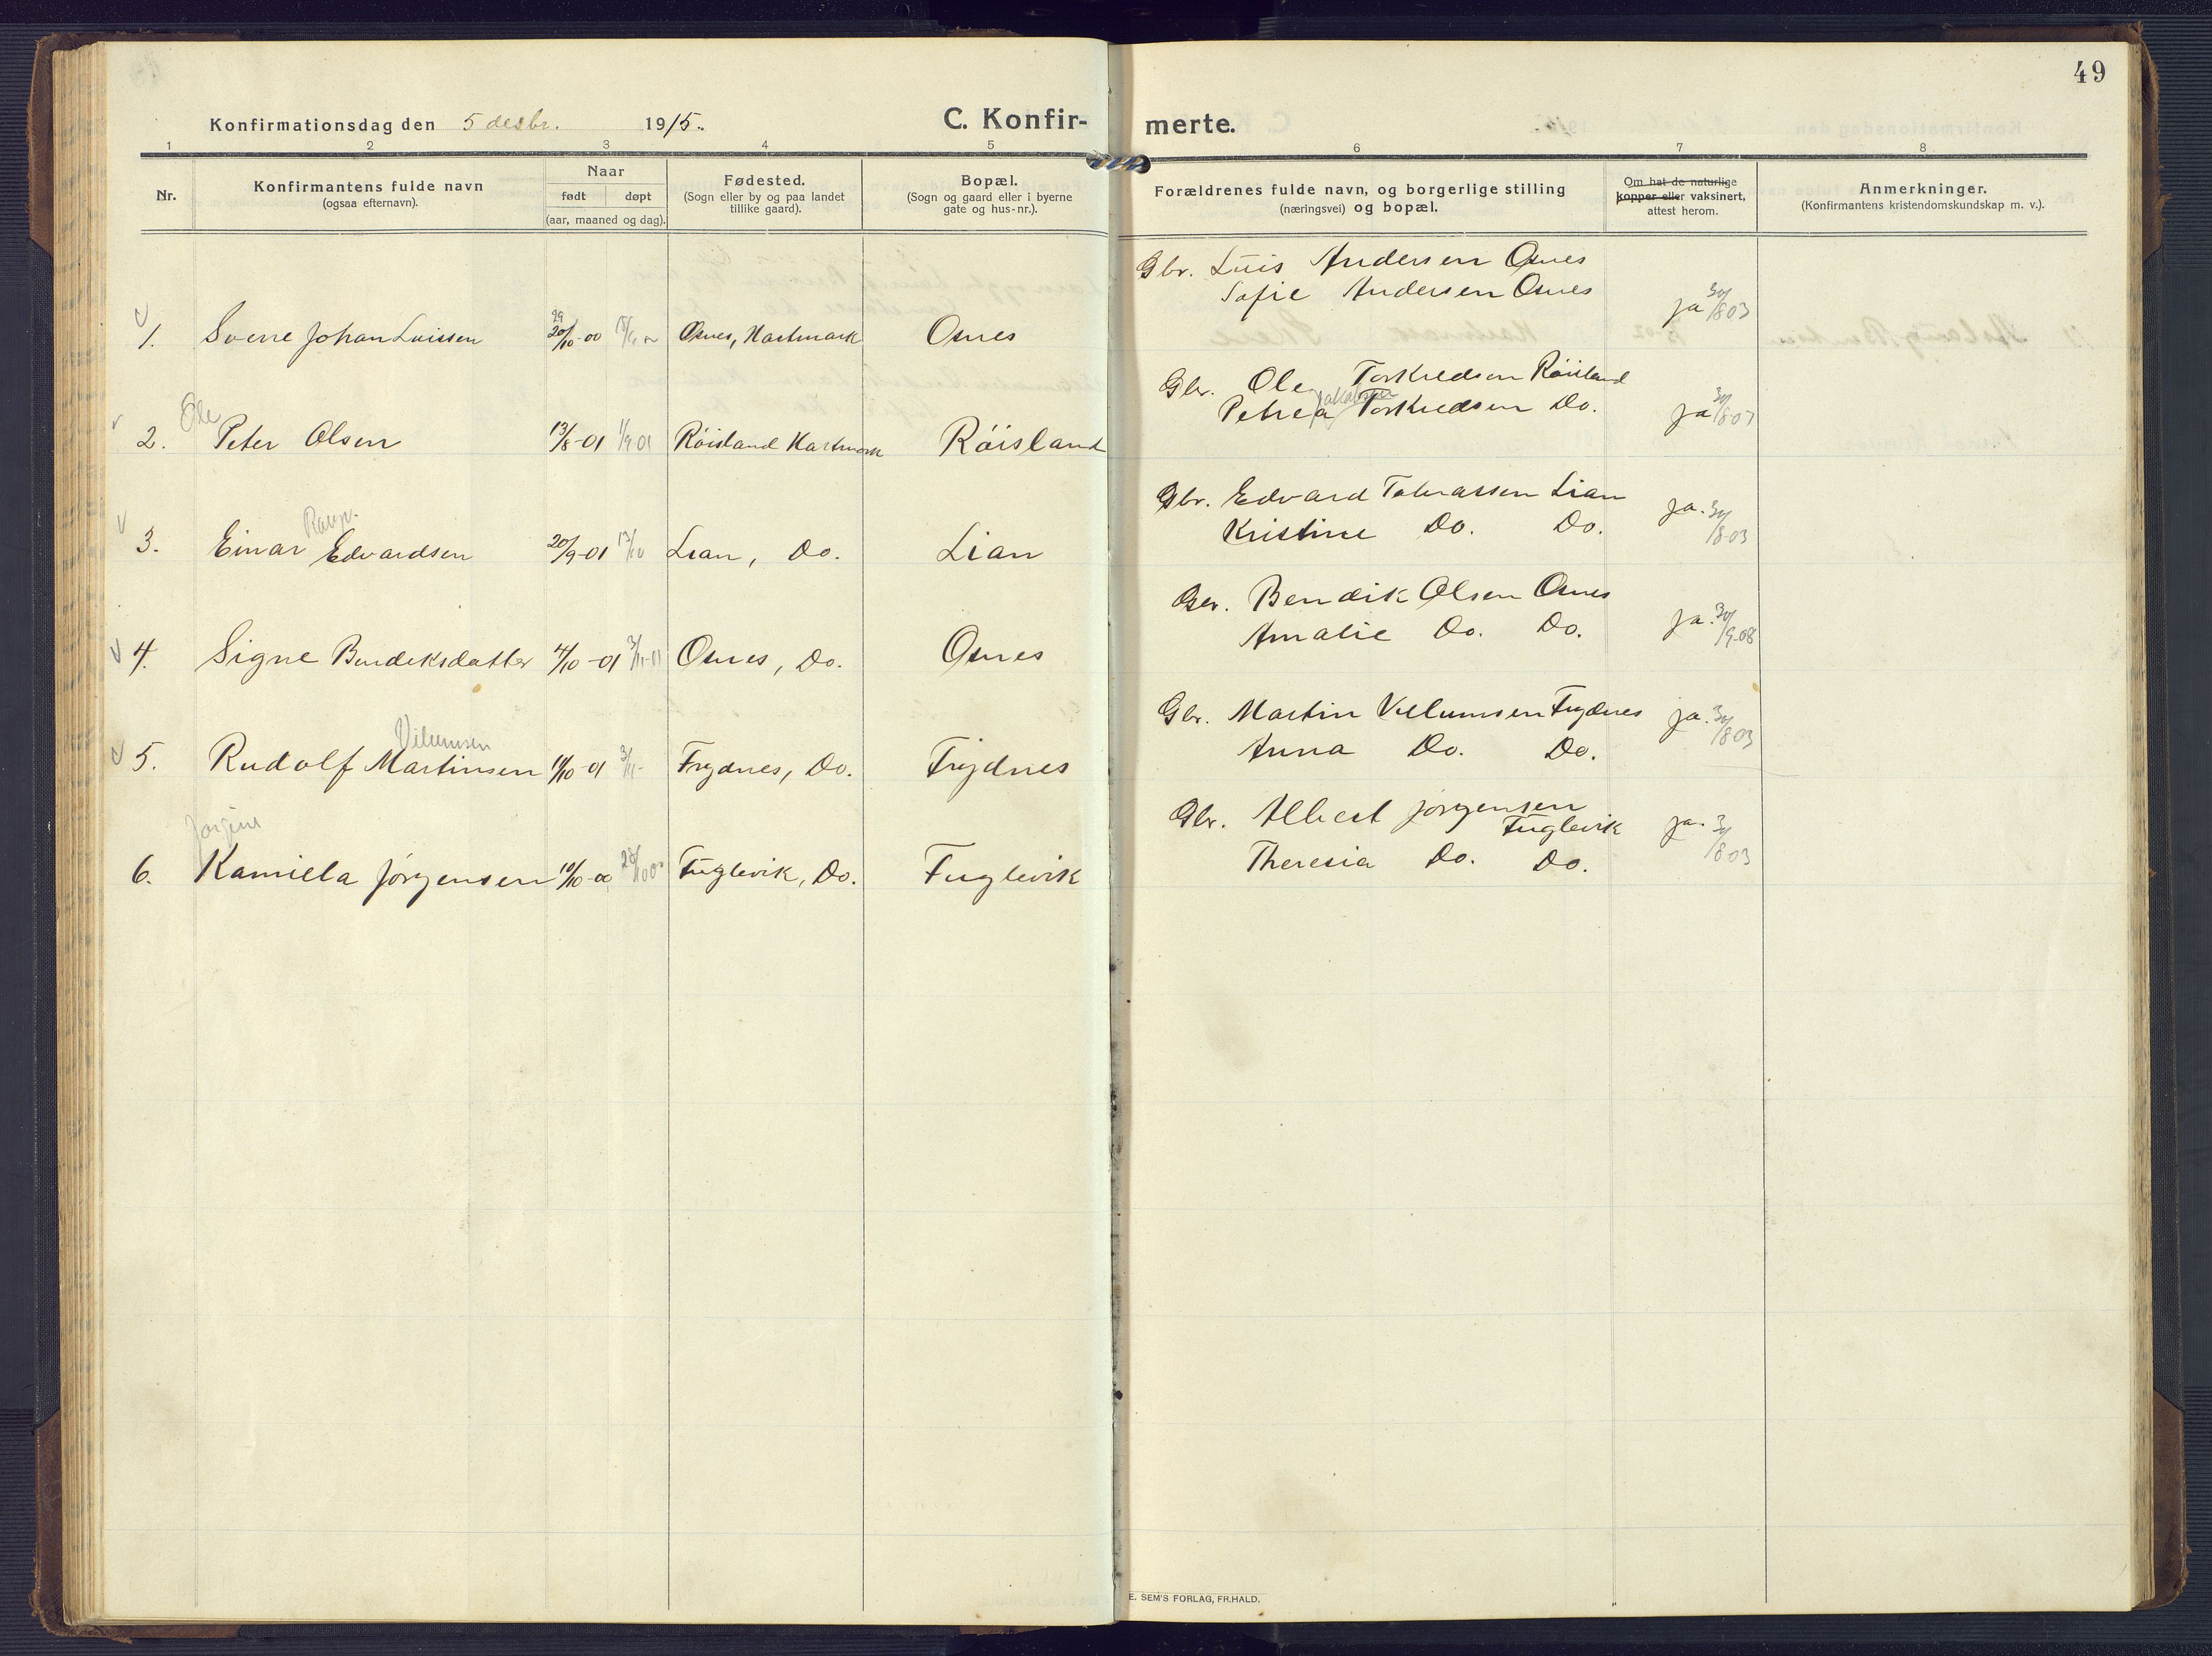 49
Konfirmationsdag den 5 desbr. 1915.
C. Konfirmerte.
1 2 3 4 5 6 7 8
Nr.
Konfirmantens fulde navn
(ogsaa efternavn).
Naar
født døpt
(aar, maaned og dag).
Fødested.
(Sogn eller by og paa landet
tillike gaard).
Bopæl.
(Sogn og gaard eller i byerne
gate og hus-nr.).
Forældrenes fulde navn, og borgerlige stilling
(næringsvei) og bopæl.
Om hat de naturlige
kopper eller vaksinert,
attest herom.
Anmerkninger.
(Konfirmantens kristendomskundskap m. v.).
Gbr. Luis Andersen Osnes
Sofie Andersen Osnes
ja 30/8 03
1. Sverre Johan Luissen 29 20/10-00 Osnes, Hartmark Osnes
Gbr. Ole Torkredsen Röisland
Petrea Jakobsen Torkredsen Do.
ja 30/8 03
Ole
2. Peter Olsen 13/8-01 1/9 01 Röisland Hartmark Röisland
Gbr. Edvard Tobiassen Lian
Kristine Do. Do.
ja. 30/8-03
3. Einar Edvardsen 20/9-01 13/10 Lian, Do. Lian
Gbr. Bendik Olsen Osnes
Amalie Do. Do.
ja. 30/9-08
4. Signe Bendiksdatter 4/10-01 3/11-01 Osnes, Do. Osnes
Gbr. Martin Vilumsen Frydnes
Anna Do. Do.
ja. 30/8 03
Vilumsen
5. Rudolf Martinsen 11/10-01 3/11- Frydnes, Do. Frydnes
Gbr. Albert Jörgensen
Fuglevik
Theresia Do. Do.
ja. 30/8 03
Jörgine
6. Kamilla Jörgensen 10/10-00 28/10 00 Fuglevik, Do. Fuglevik
E. SEM'S FORLAG, FR.HALD.